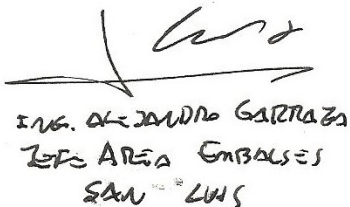 ING. ALEJANDRO GARRAZA
JEFE AREA EMBALSES
SAN LUIS